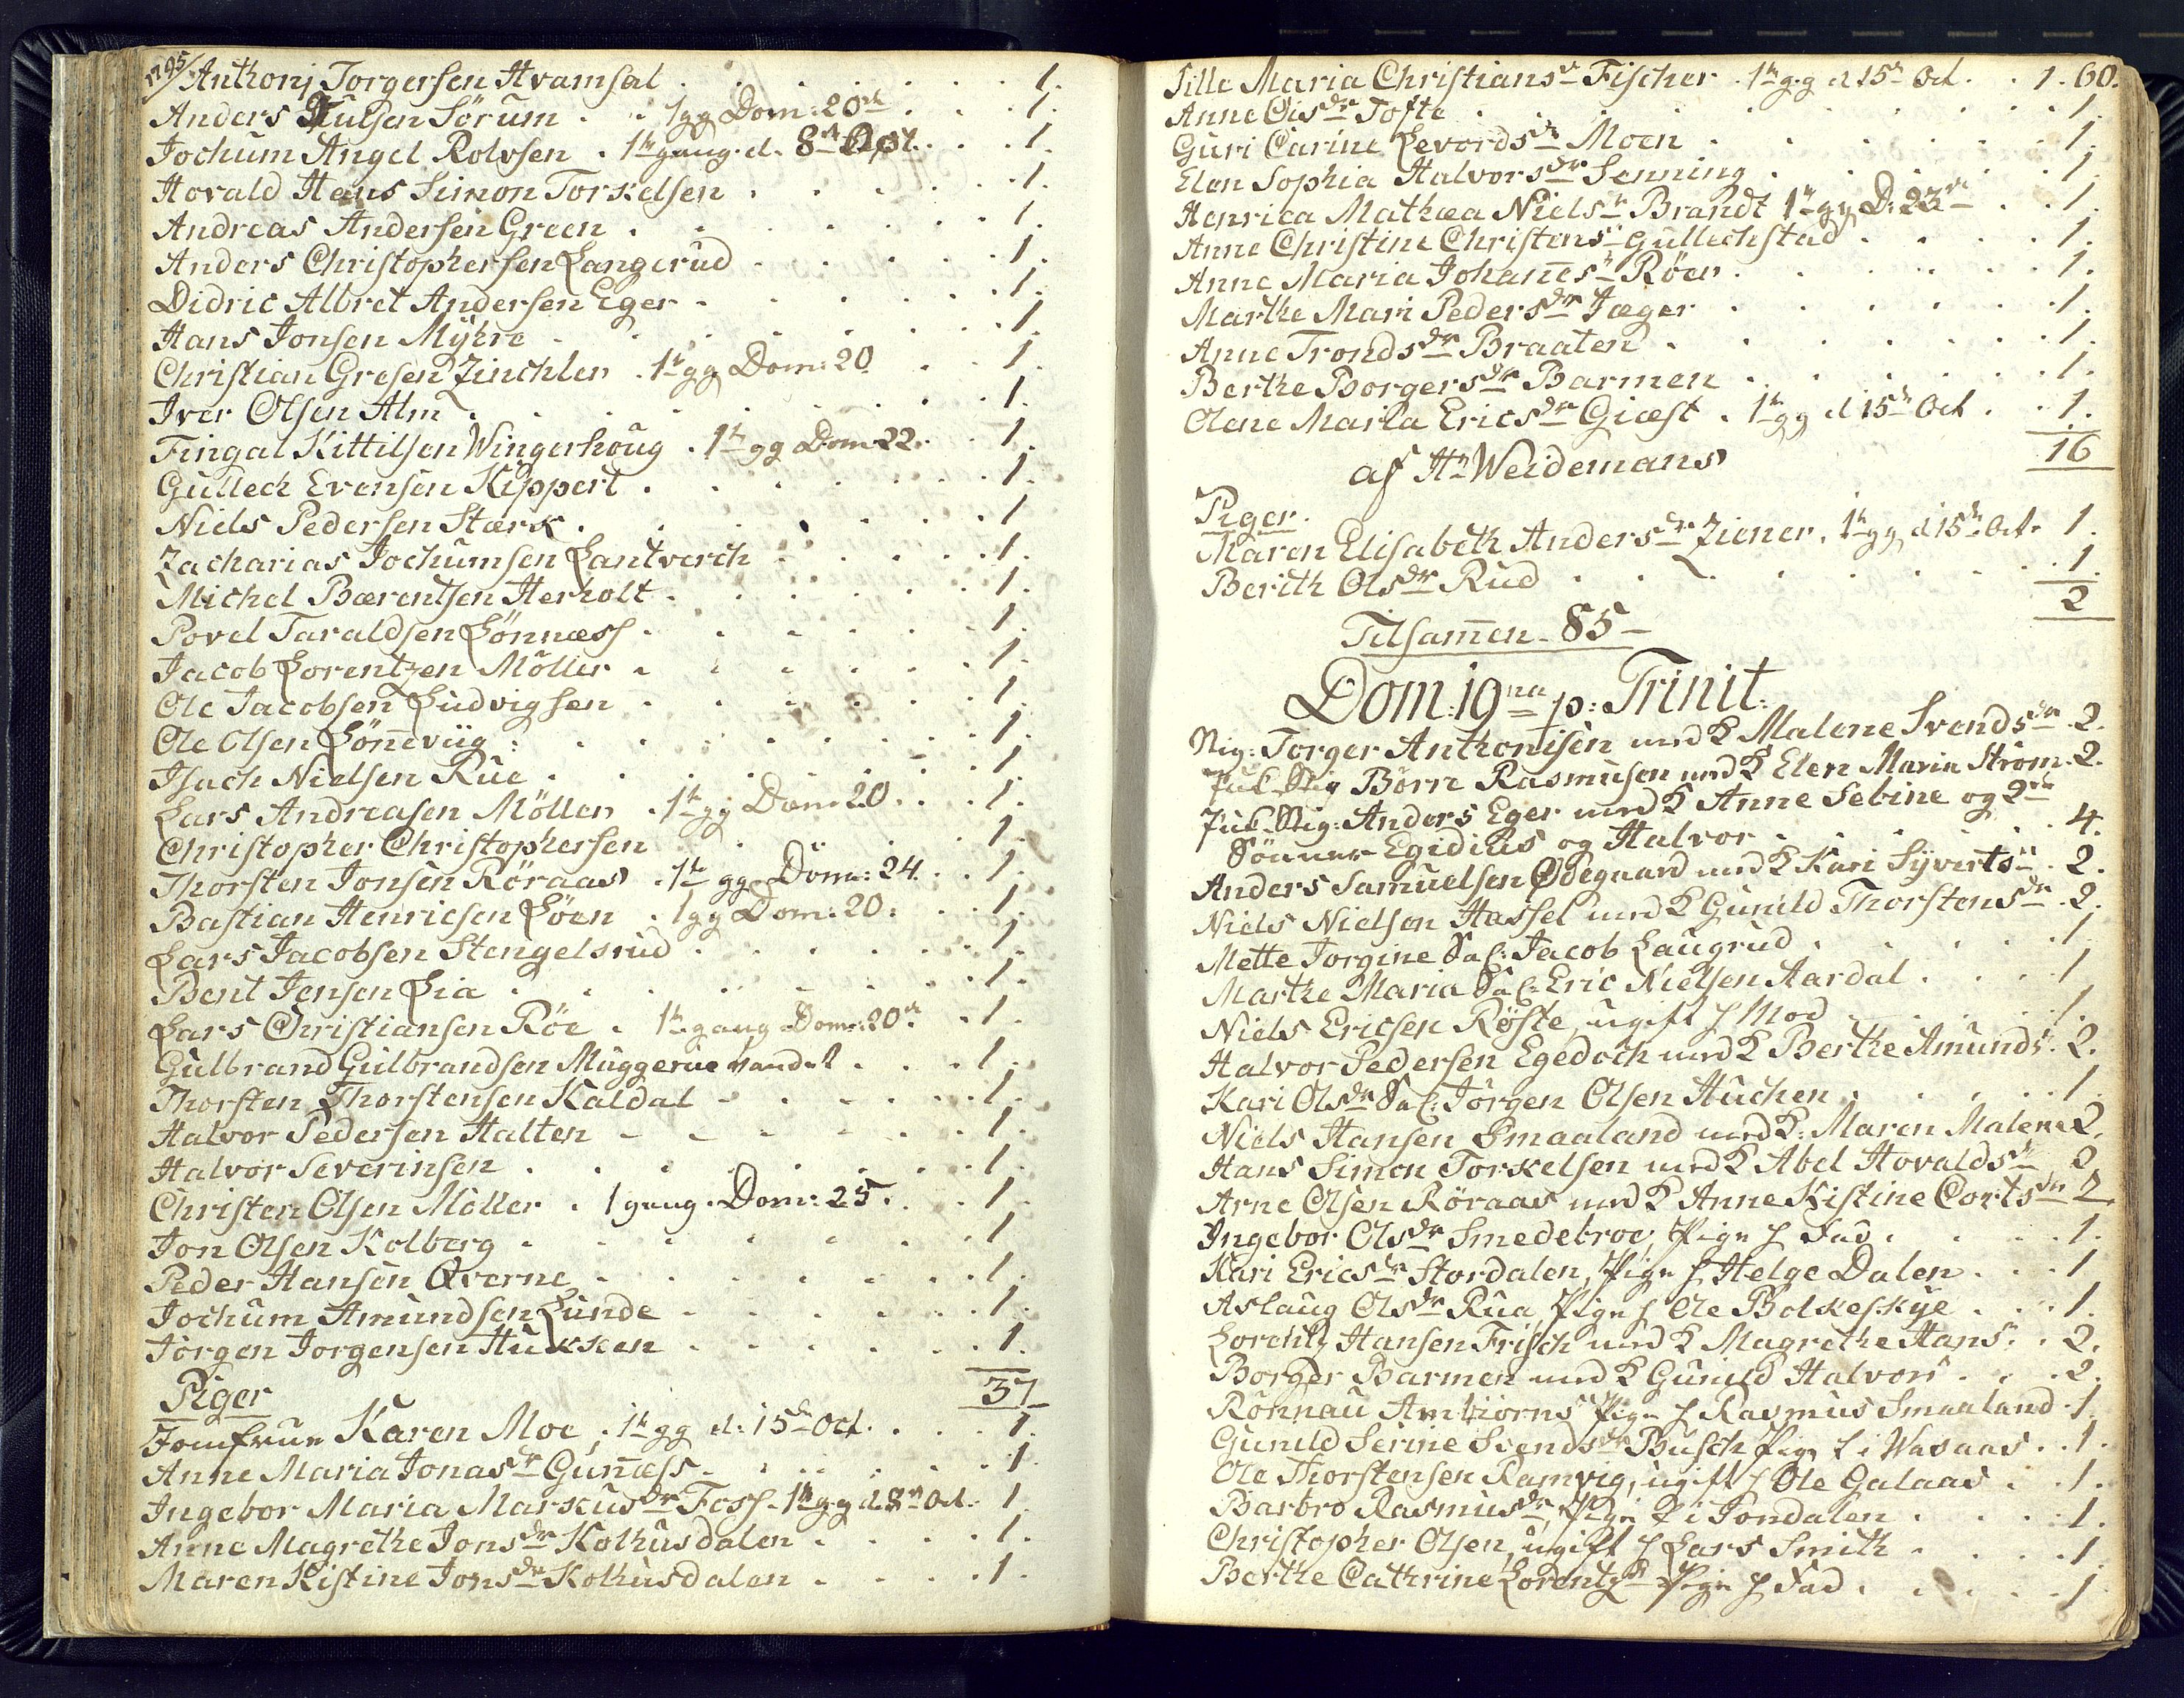 1795/ Anthonj Torgersen Hvamsal . . . . . . . 1.
Anders Iulsen Sörum . . 1 gg Dom: 20de . . . 1.
Jochum Angel Rolvsen . 1te gang d. 8de Oct. . . . 1.
Hovald Hans Simon Torkelsen . . . . . 1.
Andreas Andersen Green . . . . . . . 1.
Anders Christophersen Langerud . . . . . 1.
Didric Albret Andersen Eger . . . . . . 1.
Hans Jonsen Mÿhre . . . . . . . . 1.
Christian Gresen Zinchler . 1te gg Dom: 20 . . 1.
Iver Olsen Alm . . . . . . . . . 1.
Fingal Kittilsen Wingerhoug . 1te gg Dom 22. . 1.
Gulleck Evensen Kippert . . . . . . . 1.
Niels Pedersen Stærk . . . . . . . 1.
Zacharias Jochumsen Lantverch . . . . . 1.
Michel Bærentsen Herholt . . . . . . 1.
Povel Taraldsen Lönnæss . . . . . . 1.
Jacob Lorentzen Möller . . . . . . 1.
Ole Jacobsen Ludvigsen . . . . . . . 1.
Ole Olsen Lönneviig . . . . . . . 1.
Isach Nielsen Rue . . . . . . . . 1.
Lars Andreasen Möller . 1te gg Dom 20 . . . 1.
Christopher Christophersen . . . . . . 1.
Thorsten Jonsen Röraas . 1te gg Dom: 24. . . 1.
Bastian Henricsen Löen . 1 gg Dom: 20: . . 1.
Lars Jacobsen Stengelsrud . . . . . . 1.
Bent Jensen Lia . . . . . . . . 1.
Lars Christiansen Röe . 1te gang Dom: 20de . . 1.
Gulbrand Gulbrandsen Muggerue vandet . . . 1.
Thorsten Thorstensen Kaldal . . . . . . 1.
Halvor Pedersen Halten . . . . . . . 1.
Halvor Severinsen . . . . . . . . 1.
Christen Olsen Möller . 1 gang . Dom: 25. . . 1.
Jon Olsen Kolberg . . . . . . . . 1.
Peder Hansen Qverne . . . . . . . 1.
Jochum Amundsen Lunde . . . . . . 1.
Jörgen Jorgensen Hukken . . . . . . 1.
Piger 37
Jomfrue Karen Moe . 1te gg d: 15de Oct. . . . 1.
Anne Maria Jonasdr Gunness . . . . . . 1.
Ingebor Maria Markusdr Foss . 1te gg d. 8de Oct. 1.
Anne Magrethe Jonsdr Kolhusdalen . . . . 1.
Maren Kistine Jonsdr Kolhusdalen . . . . 1.
Sille Maria Christiansdr Fischer . 1te gg d 15de Oct . . 1. 60.
Anne Oisdr Tofte . . . . . . . . . 1.
Guri Carine Levordsdr Moen . . . . . . 1.
Elen Sophia Halvorsdr Senning . . . . . 1.
Henrica Mathæa Nielsdr Brandt 1te gg D: 23de . . 1.
Anne Christine Christensdr Gullechstad . . . . 1.
Anne Maria Johannesdr Röen . . . . . . 1.
Marthe Mari Pedersdr Jæger . . . . . . 1.
Anne Trondsdr Braaten . . . . . . . 1.
Berthe Borgersdr Barmen . . . . . . . 1.
Olene Maria Ericsdr Giæst . 1te gg d 15de Oct . . 1.
16
af Hr Weidemans
Piger.
Maren Elisabeth Andersdr Ziener. 1te gg d 15de Oct. 1.
Berith Olsdr Rud . . . . . . . . . 1.
2
Tilsamen - 85 -
Dom: 19na p: Trinit:
Stig: Torger Anthonisen med K Malene Svendsdr . 2.
Juk Stig Börre Rasmusen med K Elen Maria Ström . 2.
Juk Stig: Anders Eger med K Anne Sebine og 2de
Sönner Egidius og Halvor . . . . . . . 4.
Anders Samuelsen Ödegaard med K Kari Syvertsdr . 2.
Niels Nielsen Hassel med K Gunild Thorstensdr . 2.
Mette Jorgine Sal: Jacob Laugrud . . . . . 1
Marthe Maria Sal: Eric Nielsen Aardal . . . . 1
Niels Ericsen Röste, ugift h Mod . . . . . 1.
Halvor Pedersen Egedoch med K Berthe Amunds. 2.
Kari Olsdr Sal: Jörgen Olsen Huchen . . . . 1
Niels Hansen Smaaland med K: Maren Malene 2.
Hans Simon Torkelsen med K Abel Hovaldsdr . 2.
Arne Olsen Röraas med K Anne Kistine Cortsdr 2.
Ingebor Olsdr Smedebroe, Pige h Fad . . . . 1.
Kari Ericsdr Stordalen, Pige h Helge Dalen . . . 1
Aslaug Olsdr Rua Pige h Ole Bolkeskye . . . 1.
Lorentz Hansen Frisch med K Magrethe Hans . . 2.
Borger Barmen med K Gunild Halvors . . . 2.
Rönnau Ambiörns Pige h Rasmus Smaaland . 1.
Gunild Serine Svendsdr Busch Pige t i Vasaas . . 1.
Ole Thorstensen Ramvig, ugift h Ole Galaas . . 1.
Barbro Rasmusdr, Pige t i Jondalen . . . . 1.
Christopher Olsen, ugift h Lars Smith . . . . 1
Berthe Cathrine Lorentzdr Pige h Fad . . . . . 1